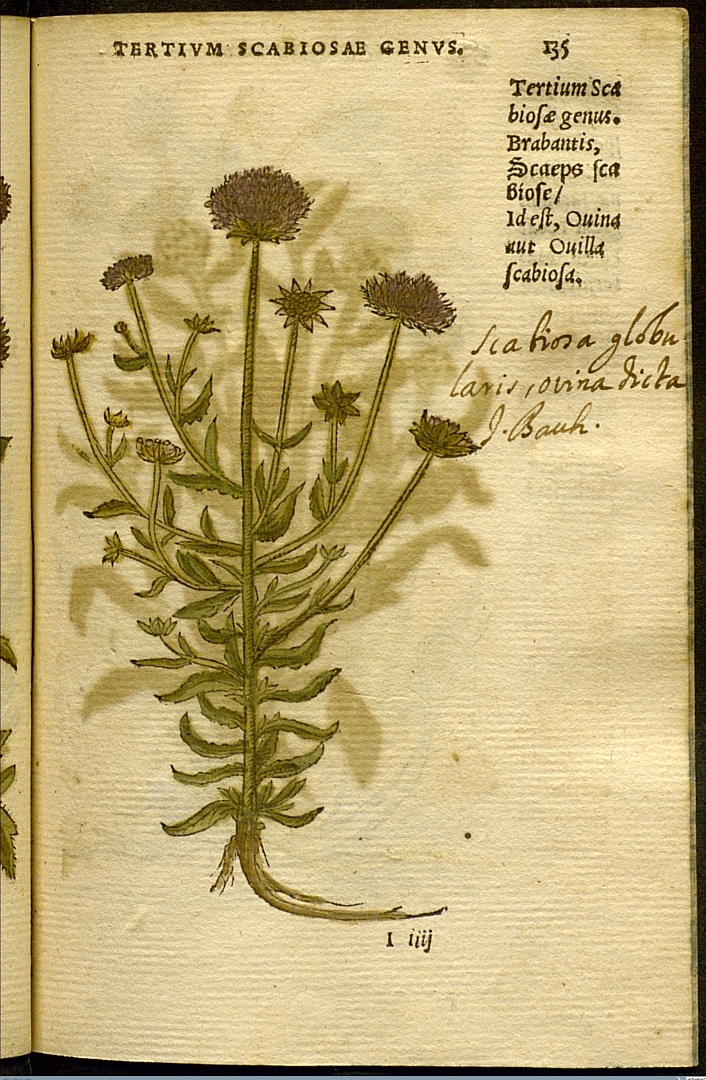 TERTIVM SCABIOSAE GENVS. 135
Tertium Sca
bioſæ genus.
Brabantis,
Scaeps ſca
bioſe/
Id eſt, Ouina
aut Ouilla
ſcabioſa.
Scabiosa globu
laris, ovina dicta
J. Bauh.
I iiij